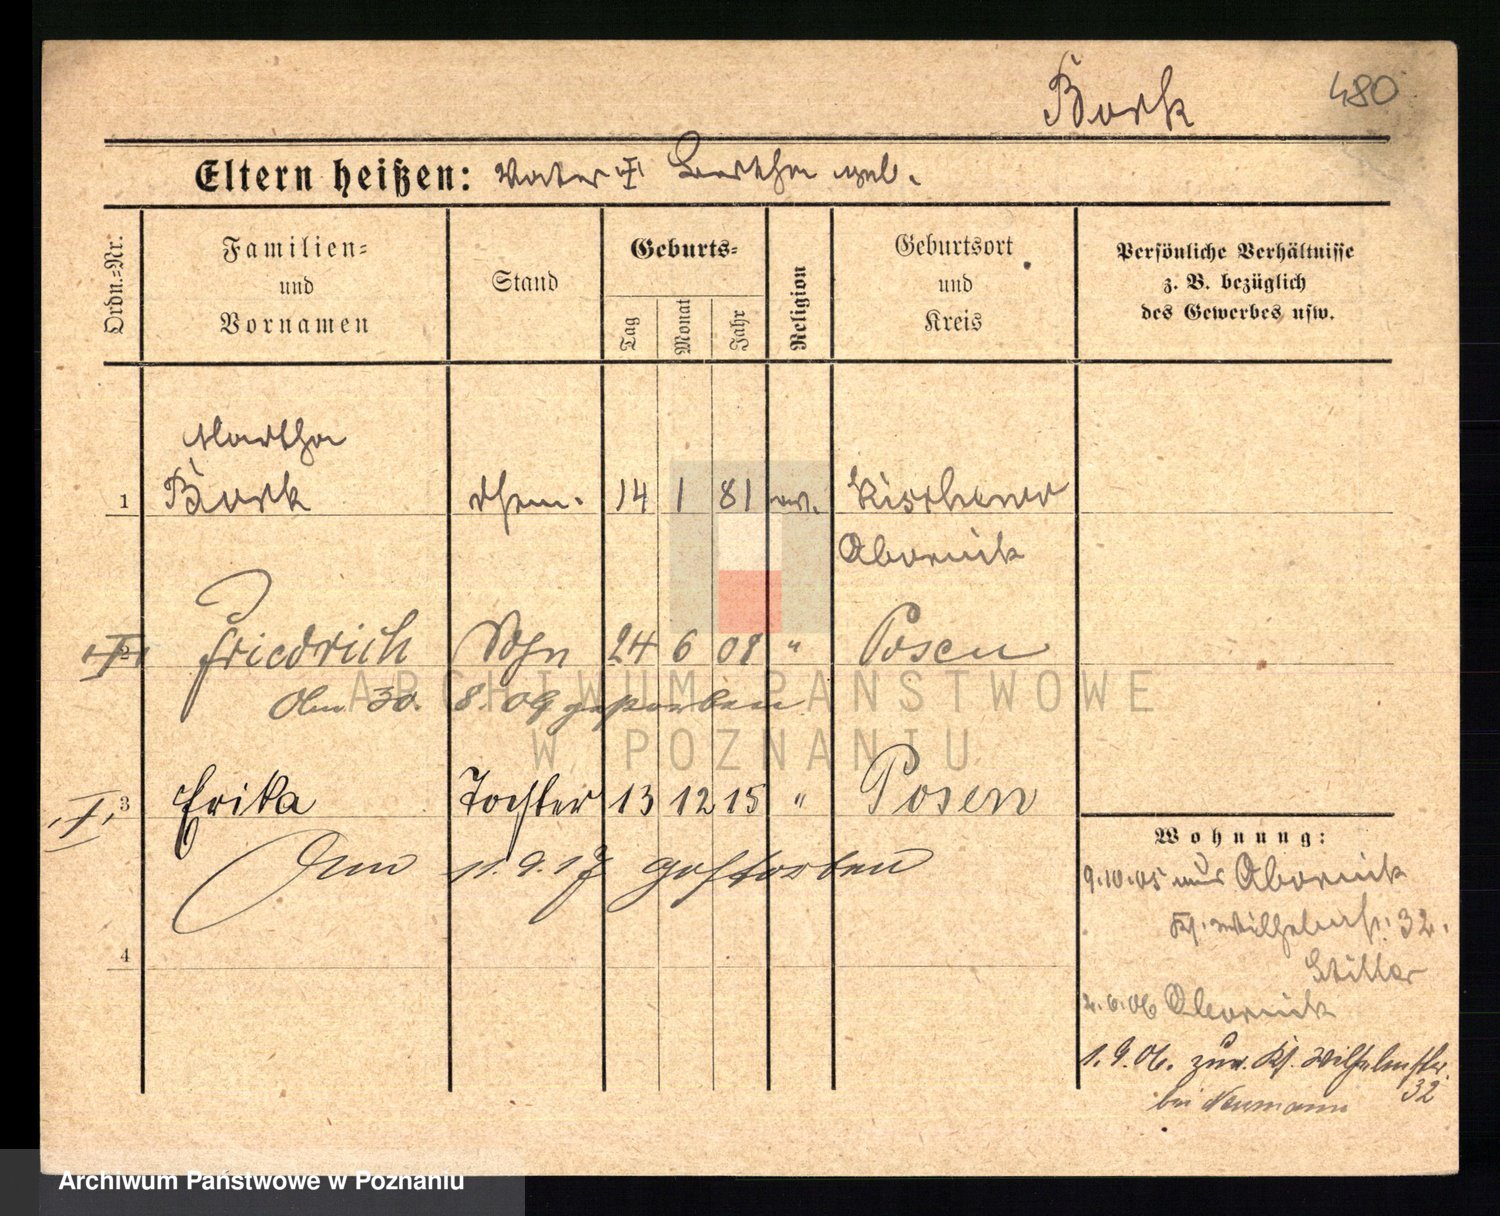 Bork
480
Eltern heißen: Vater Bertha geb.
Ordn.-Nr.
Familien-
und
Vornamen
Stand
Geburts-
Tag
Monat
Jahr
Religion
Geburtsort
und
Kreis
Persönliche Verhältnisse
z. B. bezüglich
des Gewerbes usw.
Martha
1 Bork 14 1 81 ev.
Obornik
2 Friedrich Sohn 24 6 08 " Posen
Am 30. 8. 09 gestorben
3 Erika Tochter 13 12 15 " Posen
Am 11. 9. 17 gestorben
4
Wohnung:
9.10.05 aus Obornik
Kl. Wilhelmstr. 32.
Stiller
2.6.06 Obornik
1. 9. 06. zur. Kl. Wilhelmstr.
32
bei Neumann
ARCHIWUM PAŃSTWOWE
W POZNANIU
Archiwum Państwowe w Poznaniu